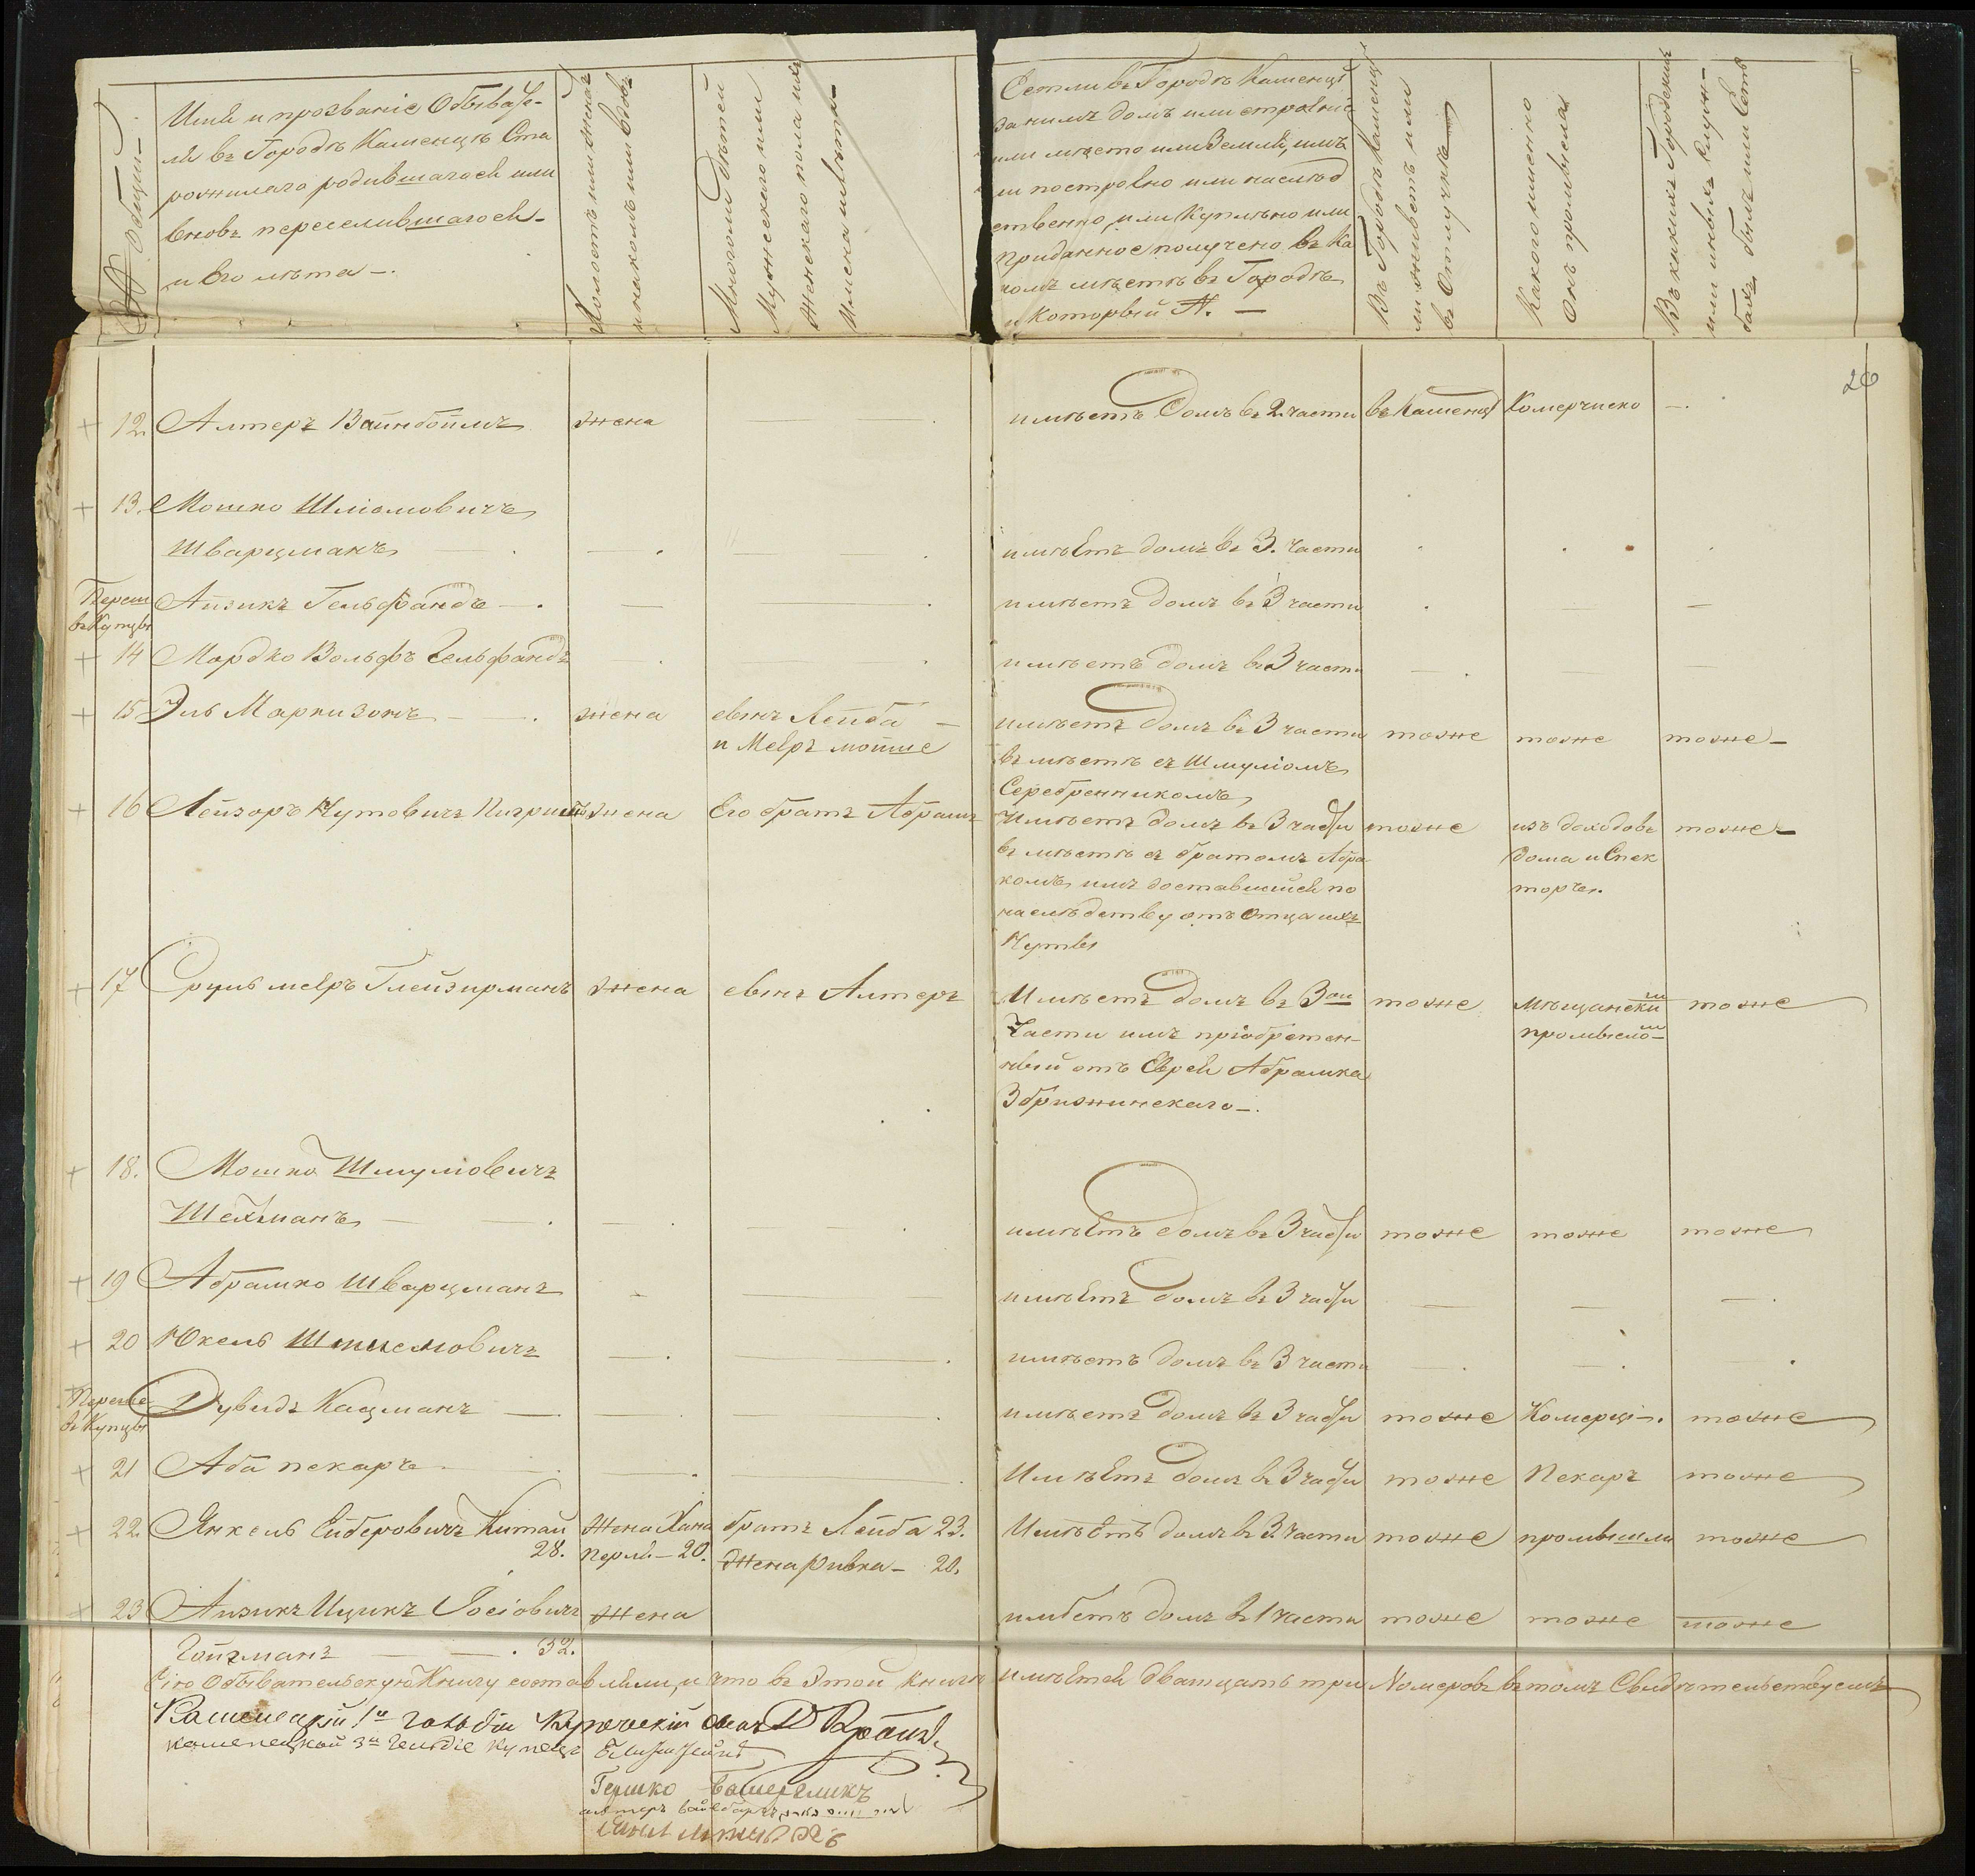 Общій
Имя и прозваніе Обывате-
ля въ Городѣ Каменцѣ Ста
рожилаго родившагося или
вновь переселившагося
и Его лѣта —.
Холостъ или женатъ
и на комъ или вдовъ
Много ли дѣтей
Мужескаго или
Женскаго пола ихъ
Имена и лѣта —
Естли въ Городѣ Каменцѣ
за нимъ домъ или строеніе
или мѣсто или Земля, имъ
ли построено или наслѣд
ственно, или Куплено или
приданное получено въ Ка
комъ мѣстѣ въ Городѣ
и Который №. —
Въ Городѣ Каменцѣ
ли живетъ или
въ Отлучкѣ
Какого именно
Онъ промысла
Въ какихъ Городскихъ
или иныхъ служ-
бахъ былъ или Есть
26
12. Алтеръ Вайнбоймъ жена — имѣетъ Домъ въ 2. части въ Каменцѣ Комерческо —.
13. Мошко Шліомовичъ
Шварцманъ — . — . — . имѣетъ домъ въ 3. части
Переш Айзикъ Гельфандъ — . — — . имѣетъ Домъ въ 3 части . — —
въ Купцы
14 Мордко Вольфъ Гельфандъ — . — . имѣетъ домъ въ 3 части — . — —
15 Эль Маркизонъ — . жена сынъ Лейба — имѣетъ Домъ въ 3 части тоже тоже тоже —
и Мееръ мойше въ мѣстѣ съ Шмуліомъ
Серебренникомъ
16 Лейзоръ Нутовичъ жена Его братъ Абрамъ Имѣетъ домъ въ 3 части тоже изъ доходовъ тоже —
въ мѣстѣ съ братомъ Абра дома и Спек
комъ имъ доставшійся по торъ.
наслѣдству отъ Отца ихъ
Нуты
17 Сруль мееръ Глейзирманъ жена сынъ Алтеръ Имѣетъ Домъ въ 3ой тоже Мѣщански тоже
Части имъ пріобретен- промысло
ный отъ Еврея Абрамка
Збрижинскаго —.
18. Мошко Шмулiовичъ
Шехманъ — — . — . — — . имѣетъ домъ въ 3 части тоже тоже тоже
19 Абрамко Шварцманъ — — имѣетъ домъ въ 3 части — — — .
20 Юкель — . — . имѣетъ домъ въ 3 части — . — . .
Переше Дувидъ Кацманъ — — . — . имѣетъ Домъ въ 3 части тоже Комерці —. тоже
въ Купцы
21 Аба пекаръ — . — . — . Имѣетъ домъ въ 3 части тоже Пекаръ тоже
22. Янкель Ейберовичъ Китай Жена Хана братъ Лейба 23. Имѣетъ домъ въ 3. части тоже промышли тоже
28. перля — 20. Жена Ривка — 20.
23 Айзикъ Ицикъ Іосіовичъ Жена имѣетъ домъ въ 1 части тоже тоже тоже
Гойхманъ — — . 32.
Сію Обывательскую Книгу составляли, и что въ Этой Книгѣ имѣется дватцать три Номеровъ въ томъ Свидѣтельствуемъ
Каменецкій 1й гильдіи Купеческій сынъ
каменецкой 3й гильдіе купецъ
Гершко
алтеръ